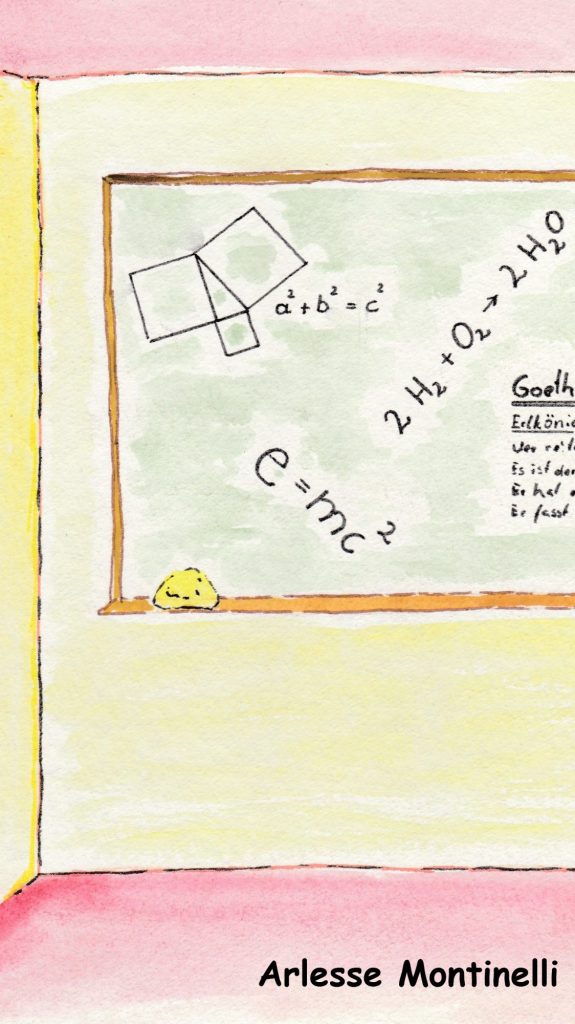 a² + b² = c²
2 H₂ + O₂ → 2 H₂O
e = mc²
Goeth
Erlköni
Wer reit
Es ist der
Er hat
Er fasst
Arlesse Montinelli